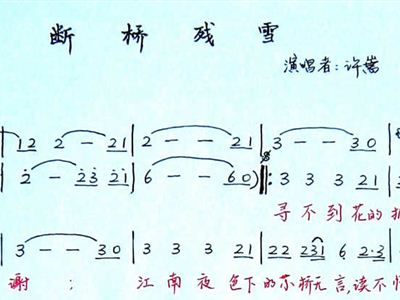 断桥残雪
演唱者:许嵩
12 2 - 21 | 2 - - 21 | 3 - - 30 |
2 - 23 21 | 6 - - 60 |: 3 3 3 21 |
寻不到花的
3 - - 30 | 3 3 3 21 | 22 2231 6 2·3 |
谢: 江南夜色下的 桥 言,读不